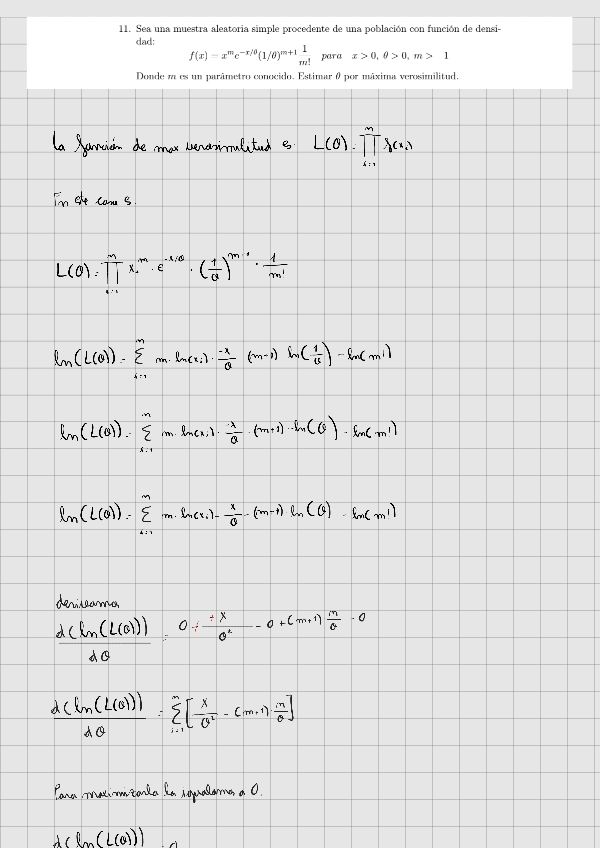 11. Sea una muestra aleatoria simple procedente de una población con función de densi-
dad:
f(x) = x^m e^{-x/θ} (1/θ)^{m+1} 1/m! para x > 0, θ > 0, m > 1
Donde m es un parámetro conocido. Estimar θ por máxima verosimilitud.
La función de max verosimilitud es L(θ) = ∏_{i=1}^{n} f(x_i)
En este caso es.
L(θ) = ∏_{i=1}^{n} x_i^m · e^{-x/θ} · (1/θ)^{m+1} · 1/m!
ln(L(θ)) = Σ_{i=1}^{n} m · ln(x_i) · -x/θ (m+1) ln(1/θ) - ln(m!)
ln(L(θ)) = Σ_{i=1}^{n} m · ln(x_i) · -x/θ · (m+1) · -ln(θ) - ln(m!)
ln(L(θ)) = Σ_{i=1}^{n} m · ln(x_i) - x/θ - (m+1) · ln(θ) - ln(m!)
derivamos
d(ln(L(θ)))/dθ = 0 + +x/θ² - 0 + (m+1) n/θ - 0
d(ln(L(θ)))/dθ = Σ_{i=1}^{n} [x/θ² - (m+1) · n/θ]
Para maximizarla la igualamos a 0.
d(ln(L(θ)))